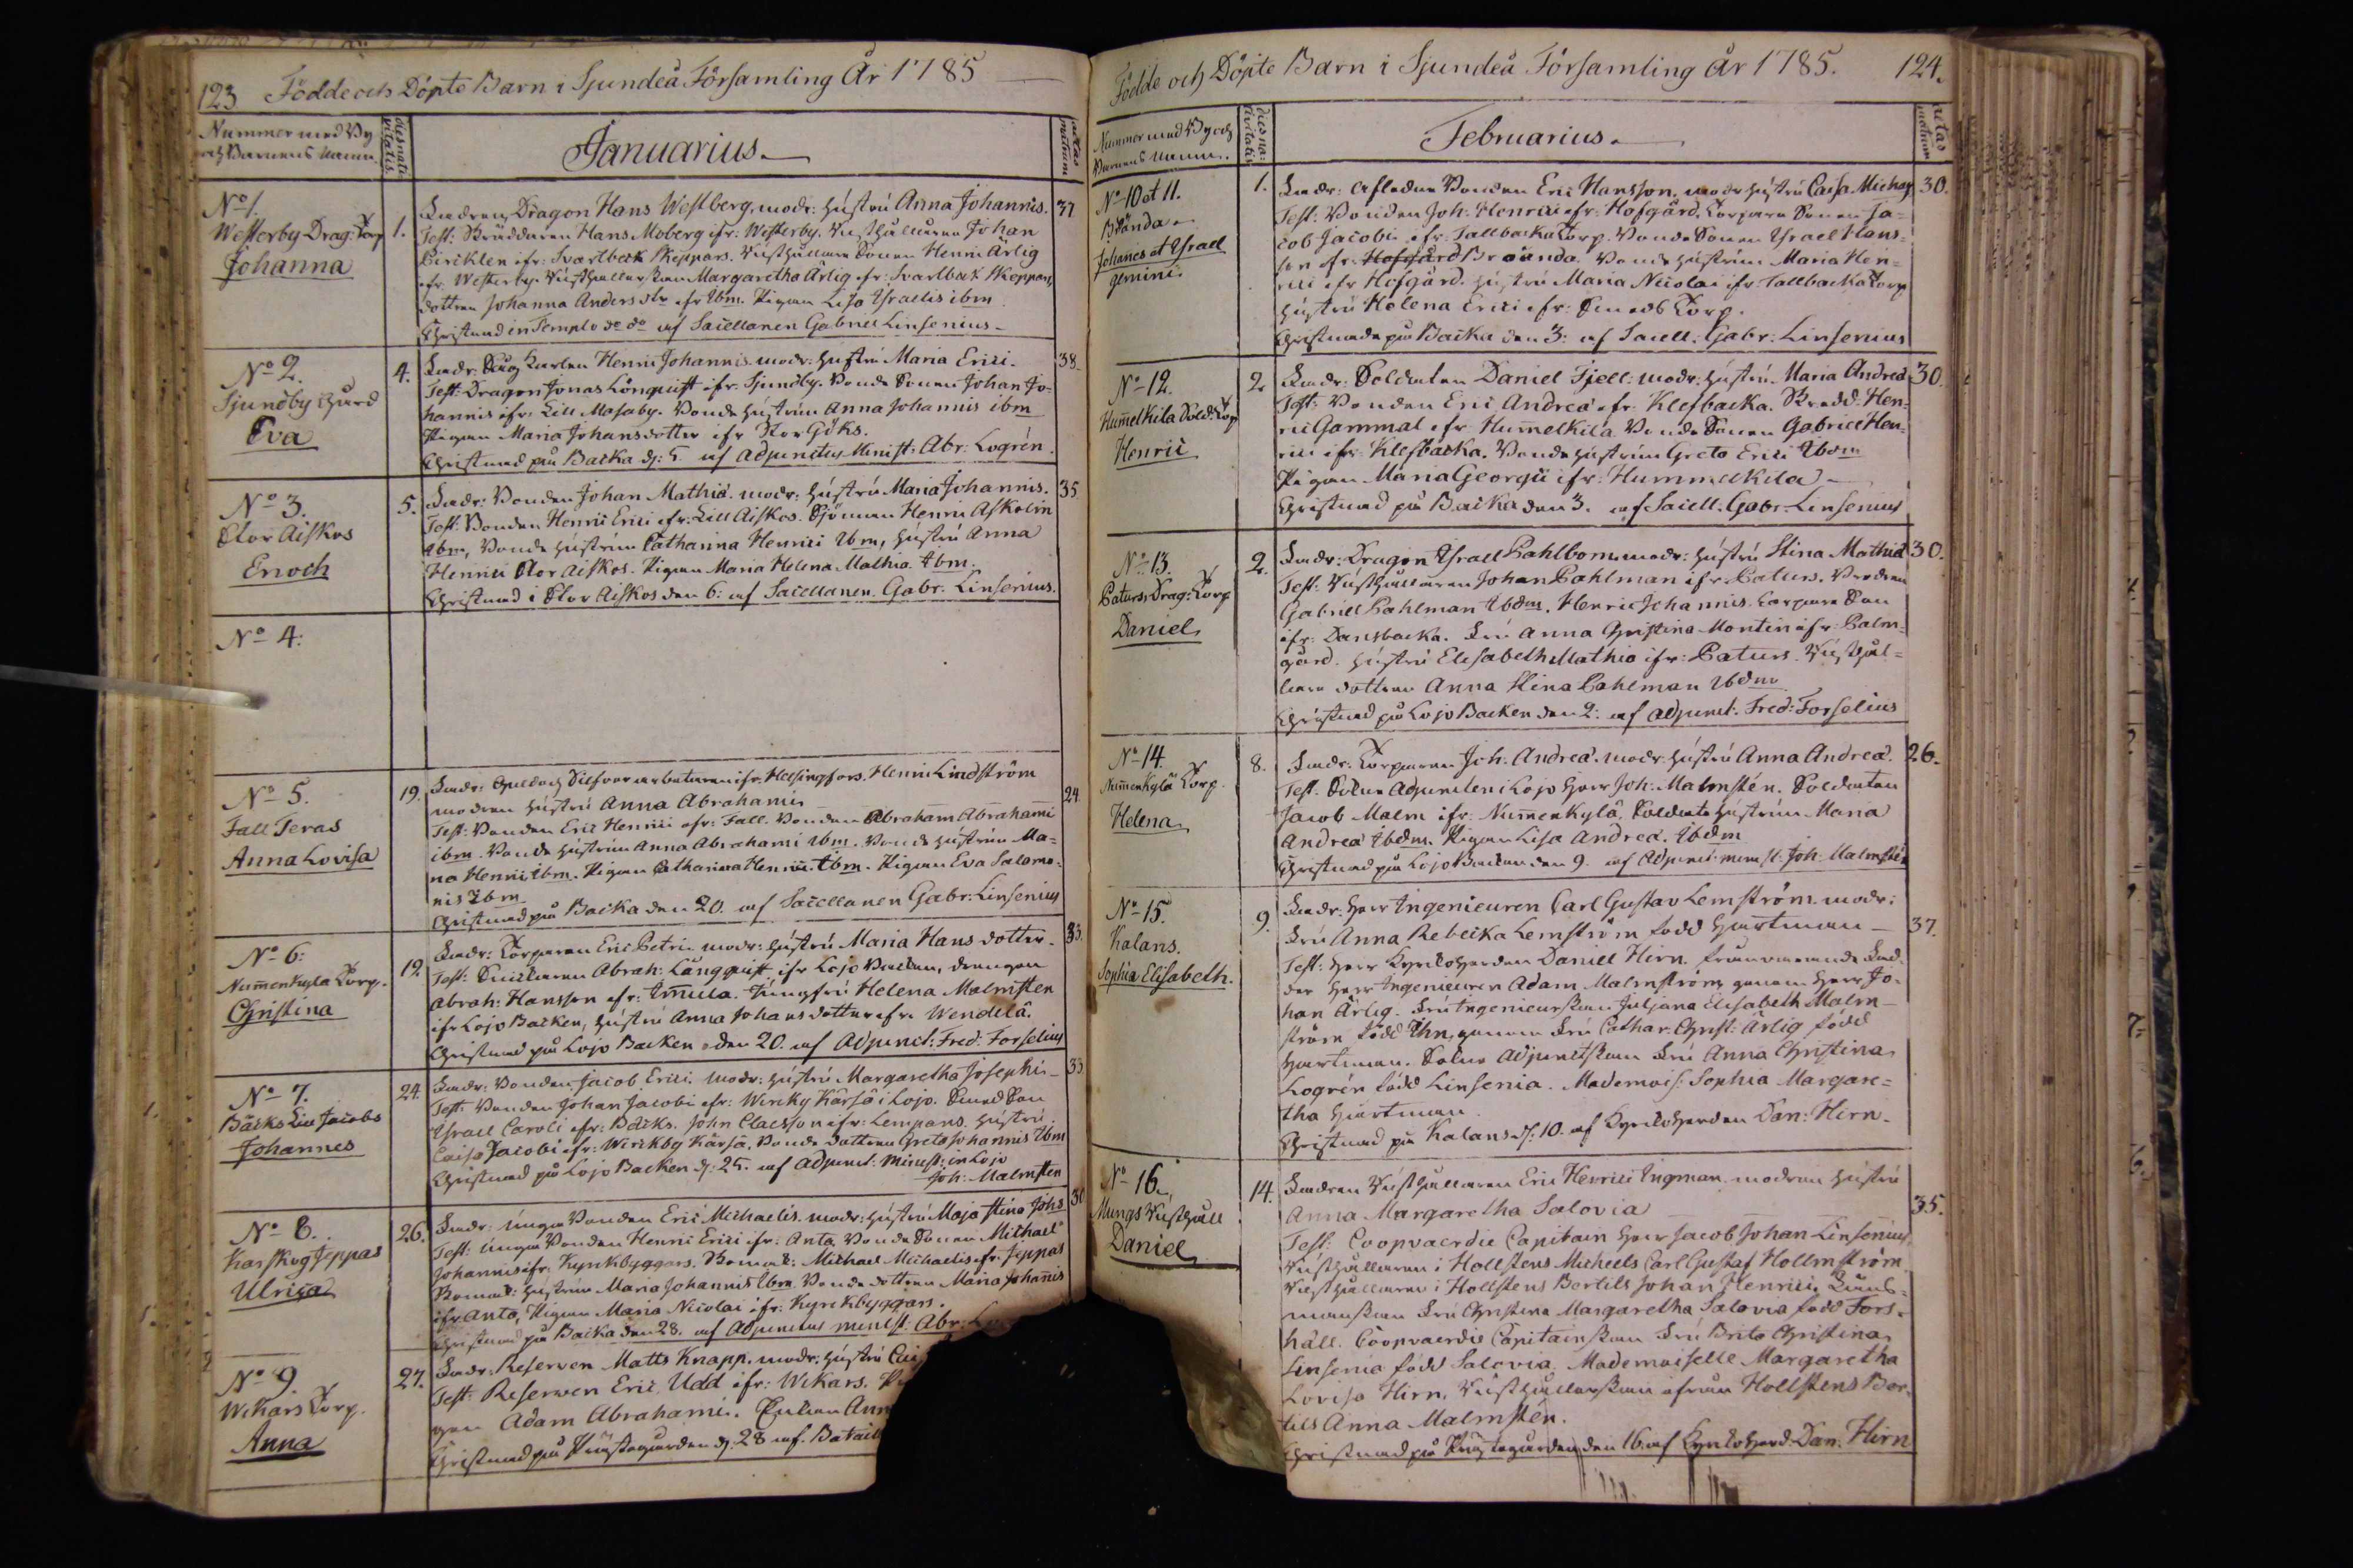 123 Födde och Döpte Barn i Sjundeå Församling År 1785
Nummer med By
och Barnens Namn.
dies nata-
litatis
Januarius.
ætas
matrum
No 1.
Westerby Drag: Torp
Johanna
1.
37
Fadren Dragon Hans Westberg, modr: hústrú Anna Johannis.
Test: Skräddaren Hans Moberg ifr: Westerby. Rusthållaren Johan
ifr: Svartbeck Skeppars. Rusthållare Sonen Henric Ärlig
ifr. Westerby. Rusthållerskan Margaretha Ärlig ifr: Svartbäck Skeppars,
dottren Johanna Anders dtr ifr Ibm. Pigan Lisa Israelis ibm
Christnad in Templo do do af Sacellanen Gabriel Linsenius
No 2.
Sjundby Gård
Eva
4.
38.
Fadr: Karlen Henric Johannis. modr: hustru Maria Erici.
Test: Dragon Jonas Lönquist ifr: Sjundby. Bonde Sonen Johan Jo-
hannis ifr: Lill Masaby. Bonde hústrún Anna Johannis ibm
Pigan Maria Johansdotter ifr Stor Göks.
Christnad på Backa d: 5. af Adjunctus Minist: Abr: Logrén.
No 3.
Stor Aiskos
Enoch
5.
35
Fadr: Bonden Johan Mathiæ. modr: hústrú Maria Johannis.
Test: Bonden Henric Erici ifr: Lill Aiskos. Sjöman Henric Askolin
Ibm, Bonde hústrún Catharina Henrici Ibm, hústrú Anna
Henrici Stor Aiskos. Pigan Maria Helena Mathiæ Ibm.
Christnad i Stor Aiskos den 6: af Sacellanen. Gabr: Linsenius.
No 4:
No 5.
Fall Teras
Anna Lovisa
19.
24.
Fadr: Gull och Silfver arbetaren ifr. Helsingfors. Henric Lindström
modren hústrú Anna Abrahami
Test: Bonden Eric Henrici ifr: Fall. Bonden Abraham Abrahami
ibm. Bonde hústrún Anna Abrahami Ibm. Bonde hústrún Ma-
ria Henrici Ibm. Pigan Catharina Henrici Ibm. Pigan Eva Salomo-
nis Ibm
Christnad på Backa den 20. af Sacellanen Gabr: Linsenius
No 6:
Numenkyla Torp.
Christina
19.
33.
Fadr: Torparen Eric Petri. modr: hústrú Maria Hans dotter.
Test: Snickaren Abrah: Långquist ifr Lojo Backen, drengen
Abrah: Hansson ifr: Immula. Jungfrú Helena Malmsten
ifr Lojo Backen, hústrú Anna Johansdotter ifr. Wendelä.
Christnad på Lojo Backen den 20. af Adjunct: Fred: Forselius
No 7.
Bäcks Lill Jacobs
Johannes
24.
33
Fadr: Bonden Jacob Erici. modr: hústrú Margaretha Josephi
Test: Bonden Johan Jacobi ifr: Wirckby Karsä i Lojo. Smed Son
Israel Caroli ifr: Bäcks. John Claesson ifr: Lempans. hústrú
Caisa Jacobi ifr: Wirckby Karsä. Bonde dottren Greta Johannis Ibm
Christnad på Lojo Backen d: 25. af Adjunct: Minist: in Lojo
Joh: Malmsten
No 8.
Karskog Jeppas
Ulrica
26.
30
Fadr: únga Bonden Eric Michaelis. modr: hústrú Maja Stina Johs
Test: únga Bonden Henric Erici ifr: Anta. Bonde Sonen Michael
Johannis ifr: Kyrkbyggars. Michael Michaelis ifr: Jeppas
hústrún Maria Johannis Ibm. Bonde dottren Maria Johannis
ifr Anta, Pigan Maria Nicolai ifr: Kyrckbyggars.
Christnad på Backa den 28. af Adjunctus minist: Abr:
No 9.
Wikars Torp.
Anna
27.
Fadr: Reserven Matts Knapp. modr: hústrú
Test: Reserven Eric Udd ifr: Wikars.
Adam Abrahami. Enkan
Christnad på Prästegården d: 28 af.
Födde och Döpte Barn i Sjundeå Församling År 1785. 124.
Nummer med By och
Barnens Namn.
dies na-
litatis
Februarius.
ætas
matrum
No 10 et 11.
Brånda
Johanes et Israel
gemini.
1.
30.
Fadr: Afledne Bonden Eric Hansson. modr hústrú Caisa Michag
Test: Bonden Joh: Henrici ifr: Hofgård. Torpare Sonen Ja-
cob Jacobi ifr: Tallbacka Torp. Bonde Sonen Israel Hans-
son ifr: Hofgård Brånda. Bonde hústrún Maria Hen-
rici ifr Hofgård. hústrú Maria Nicolai ifr Tallbacka Torp
hústrú Helena Erici ifr: Smeds Torp.
Christnade på Backa den 3: af Sacell: Gabr: Linsenius
No 12.
Humelkila Sold: Torp
Henric
2.
30.
Fadr: Soldaten Daniel Fjell: modr: hústrú Maria Andreæ
Test: Bonden Eric Andreæ ifr: Klefbacka. Skrädd: Hen-
ric Gammal ifr Humelkila Bonde Sonen Gabriel Hen-
rici ifr: Klefbacka. Bonde hústrún Greta Erici Ibdm
Pigan Maria Georgii ifr: Hummelkila
Christnad på Backa den 3. af Sacell: Gabr: Linsenius
No 13.
Paturs Drag: Torp
Daniel
2.
30.
Fadr: Dragon Israel Pahlbom. modr: hústrú Stina Mathiæ
Test: Rústhållaren Johan Pahlman ifr Paturs. Brodren
Gabriel Pahlman Ibdm. Henric Johannis. Torpare Son
ifr: Dansbacka. Frú Anna Christina Montin ifr: Palm-
gård. hústrú Elisabeth Mathiæ ifr: Paturs. Rústhål-
lare dottren Anna Stina Pahlman Ibdm
Christnad på Lojo Backen den 2: af adjunct: Fred: Forselius
No 14.
Numenkylä Torp.
Helena
8.
26.
Fadr: Torparen Joh: Andreæ. modr hústrú Anna Andreæ.
Test: Adjuncten i Lojo Herr Joh: Malmstén. Soldaten
Jacob Malm ifr: Numenkylä. Soldate hústrún Maria
Andreæ Ibdm. Pigan Lisa Andreæ. Ibdm
Christnad på Lojo Backen den 9. af Adjunct: minist: Joh: Malmstén
No 15.
Kalans.
Sophia Elisabeth.
9.
37.
Fadr: Herr Ingenieuren Carl Gustav Lemström. modr:
Frú Anna Rebecka Lemström född Hjartman
Test: Herr Kyrckoherden Daniel Hirn. frånvarande Fad-
der Herr Ingenieuren Adam Malmström, genom Herr Jo-
han Ärlig. Frú Ingenieurskan Juliana Elisabeth Malm-
ström född Thn, genom Frú Cathar: Christ: Ärlig född
Hjartman. Adjunctskan Frú Anna Christina
Logrén född Linsenia. Mademois: Sophia Margare-
tha Hjartman.
Christnad på Kalans d: 10. af Kyrckoherden Dan: Hirn.
No 16.
Mungs Rústhåll
Daniel
14.
35.
Fadren Rústhållaren Eric Henrici Ingman. modren hústrú
Anna Margaretha Salovia
Test: Coopvaerdie Capitain Herr Jacob Johan Linsenius,
Rústhållaren i Hollstens Michels Carl Gustaf Hollmström.
Rústhållaren i Hollstens Bertils Johan Henrici. Länds-
manskan Frú Christina Margaretha Salovia född Fors-
häll. Coopvaerdie Capitainskan Frú Brita Christina
Linsenia född Salovia. Mademoiselle Margaretha
Lovisa Hirn. Rústhållarskan ifrån Hollstens Ber-
tils Anna Malmstén.
Christnad på Prästegården den 16 af Kyrckoherd. Dan: Hirn